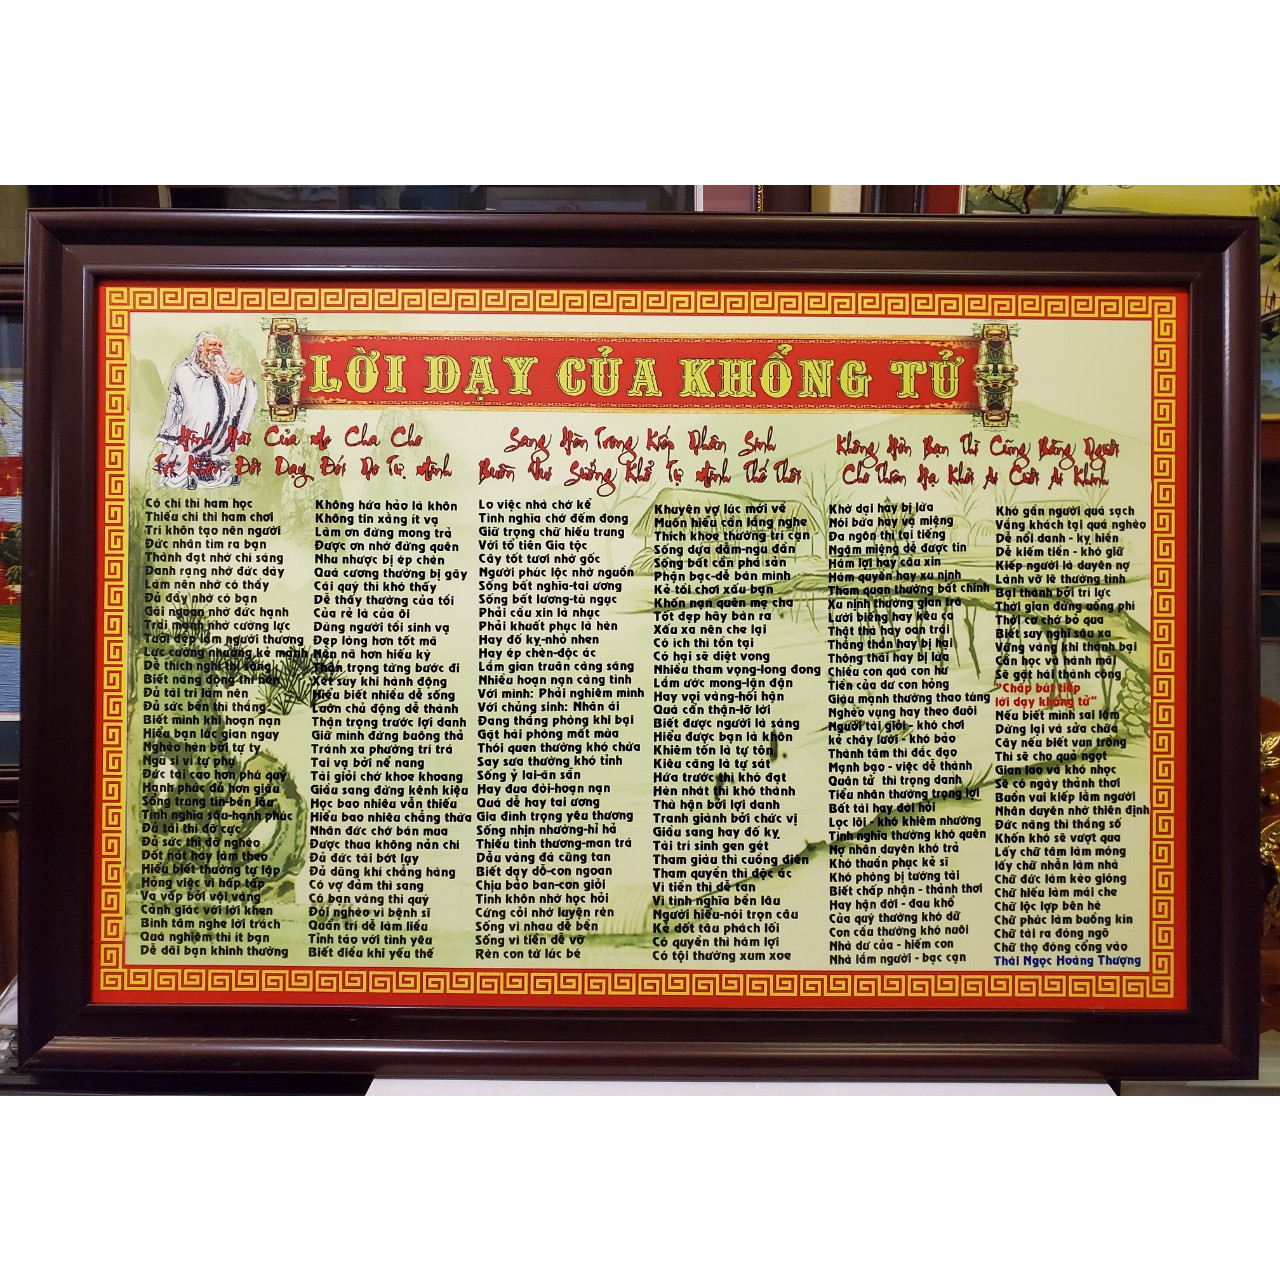 LỜI DẠY CỦA KHỔNG TỬ
Hình Hài Của Mẹ Cha Cho
Trí Khôn Đời Dạy Đói No Tự Mình
Sang Hèn Trong Kiếp Nhân Sinh
Buồn Vui Sướng Khổ Tự Mình Thế Thôi
Không Hơn Bạn Thì Cũng Bằng Người
Cho Thiên Hạ Khỏi Ai Cười Ai Khinh
Có chí thì ham học
Thiếu chí thì ham chơi
Trí khôn tạo nên người
Đức nhân tìm ra bạn
Thành đạt nhờ chí sáng
Danh rạng nhờ đức dày
Làm nên nhờ có thầy
Đủ đầy nhờ có bạn
Gái ngoan nhờ đức hạnh
Trai mạnh nhờ cường lực
Tươi đẹp làm người thương
Lực cường nhường kẻ mạnh
Dễ thích nghi thì sống
Biết năng động thì nên
Đủ tài trí làm nên
Đủ sức bền thì thắng
Biết mình khi hoạn nạn
Hiểu bạn lúc gian nguy
Nghèo hèn bởi tự ty
Ngu si vì tự phụ
Đức tài cao hơn phú quý
Hạnh phúc đủ hơn giầu
Sống trung tín-bền lâu
Tình nghĩa sâu-hạnh phúc
Đủ tài thì đỡ cực
Đủ sức thì đỡ nghèo
Dốt nát hay làm theo
Hiểu biết thường tự lập
Hỏng việc vì hấp tấp
Va vấp bởi vội vàng
Cảnh giác với lời khen
Bình tâm nghe lời trách
Quá nghiêm thì ít bạn
Dễ dãi bạn khinh thường
Không hứa hảo là khôn
Không tin xằng ít vạ
Làm ơn đừng mong trả
Được ơn nhớ đừng quên
Nhu nhược bị ép chèn
Quá cương thường bị gãy
Cái quý thì khó thấy
Dễ thấy thường của tồi
Của rẻ là của ôi
Dùng người tồi sinh vạ
Đẹp lòng hơn tốt mã
Nên nã hơn hiếu kỳ
Thận trọng từng bước đi
Xét suy khi hành động
Hiểu biết nhiều dễ sống
Luôn chủ động dễ thành
Thận trọng trước lợi danh
Giữ mình đừng buông thả
Tránh xa phường trí trá
Tai vạ bởi nể nang
Tài giỏi chớ khoe khoang
Giầu sang đừng kênh kiệu
Học bao nhiêu vẫn thiếu
Hiểu bao nhiêu chẳng thừa
Nhân đức chớ bán mua
Được thua không nản chí
Đủ đức tài bớt lụy
Đủ dũng khí chẳng hàng
Có vợ đảm thì sang
Có bạn vàng thì quý
Đói nghèo vì bệnh sĩ
Quẫn trí dễ làm liều
Tỉnh táo với tình yêu
Biết điều khi yếu thế
Lo việc nhà chớ kể
Tình nghĩa chớ đếm đong
Giữ trọng chữ hiếu trung
Với tổ tiên Gia tộc
Cây tốt tươi nhờ gốc
Người phúc lộc nhờ nguồn
Sống bất nghĩa-tai ương
Sống bất lương-tù ngục
Phải cầu xin là nhục
Phải khuất phục là hèn
Hay đố kỵ-nhỏ nhen
Hay ép chèn-độc ác
Lắm gian truân càng sáng
Nhiều hoạn nạn càng tinh
Với mình: Phải nghiêm minh
Với chúng sinh: Nhân ái
Đang thắng phòng khi bại
Gặt hái phòng mất mùa
Thói quen thường khó chừa
Say sưa thường khó tỉnh
Sống ỷ lại-ăn sẵn
Hay đua đòi-hoạn nạn
Quá dễ hay tai ương
Gia đình trọng yêu thương
Sống nhịn nhường-hỉ hả
Thiếu tình thương-man trá
Dẫu vàng đá cũng tan
Biết dạy dỗ-con ngoan
Chịu bảo ban-con giỏi
Tinh khôn nhờ học hỏi
Cứng cỏi nhờ luyện rèn
Sống vì nhau dễ bền
Sống vì tiền dễ vỡ
Rèn con từ lúc bé
Khuyên vợ lúc mới về
Muốn hiểu cần lắng nghe
Thích khoe thường trí cạn
Sống dựa dẫm-ngu đần
Sống bất cần phá sản
Phận bạc-dễ bán mình
Kẻ tồi chơi xấu bạn
Khốn nạn quên mẹ cha
Tốt đẹp hãy bán ra
Xấu xa nên che lại
Có ích thì tồn tại
Có hại sẽ diệt vong
Nhiều tham vọng-long đong
Lắm ước mong-lận đận
Hay vội vàng-hối hận
Quá cẩn thận-lỡ lời
Biết được người là sáng
Hiểu được bạn là khôn
Khiêm tốn là tự tôn
Kiêu căng là tự sát
Hứa trước thì khó đạt
Hèn nhát thì khó thành
Thù hận bởi lợi danh
Tranh giành bởi chức vị
Giầu sang hay đố kỵ
Tài trí sinh gen gét
Tham giàu thì cuồng điên
Tham quyền thì độc ác
Vì tiền thì dễ tan
Vì tình nghĩa bền lâu
Người hiểu-nói trọn câu
Kẻ dốt tâu phách lối
Có quyền thì hám lợi
Có tội thường xum xoe
Khờ dại hay bị lừa
Nói bừa hay vạ miệng
Đa ngôn thì tai tiếng
Ngậm miệng dễ được tin
Hám lợi hay cầu xin
Hám quyền hay xu nịnh
Tham quan thường bất chính
Xu nịnh thường gian trá
Lười biếng hay kêu ca
Thật thà hay oan trái
Thẳng thắn hay bị hại
Thông thái hay bị lừa
Chiều con quá con hư
Tiền của dư con hỏng
Giàu mạnh thường thao túng
Nghèo vụng hay theo đuôi
Người tài giỏi - khó chơi
kẻ chây lười - khó bảo
Thành tâm thì đắc đạo
Mạnh bạo - việc dễ thành
Quân tử thì trọng danh
Tiểu nhân thường trọng lợi
Bất tài hay đòi hỏi
Lọc lõi - khó khiêm nhường
Tình nghĩa thường khó quên
Nợ nhân duyên khó trả
Khó thuần phục kẻ sĩ
Khó phòng bị tướng tài
Biết chấp nhận - thảnh thơi
Hay hận đời - đau khổ
Của quý thường khó dữ
Con cầu thường khó nuôi
Nhà dư của - hiếm con
Nhà lắm người - bạc cạn
Khó gần người quá sạch
Vắng khách tại quá nghèo
Dễ nổi danh - kỵ hiền
Dễ kiếm tiền - khó giữ
Kiếp người là duyên nợ
Lành vỡ lẽ thường tình
Bại thành bởi trí lực
Thời gian đừng uổng phí
Thời cơ chớ bỏ qua
Biết suy nghĩ sâu xa
Vững vàng khi thành bại
Cần học và hành mãi
Sẽ gặt hái thành công
"Chấp bút tiếp
lời dạy khổng tử"
Nếu biết mình sai lầm
Dừng lại và sửa chữa
Cây nếu biết vun trồng
Thì sẽ cho quả ngọt
Gian lao và khó nhọc
Sẽ có ngày thảnh thơi
Buồn vui kiếp làm người
Nhân duyên nhờ thiên định
Đức năng thì thắng số
Khốn khó sẽ vượt qua
Lấy chữ tâm làm móng
lấy chữ nhẫn làm nhà
Chữ đức làm kèo gióng
Chữ hiếu làm mái che
Chữ lộc lợp bên hè
Chữ phúc làm buồng kín
Chữ tài ra đóng ngõ
Chữ thọ đóng cổng vào
Thái Ngọc Hoàng Thượng